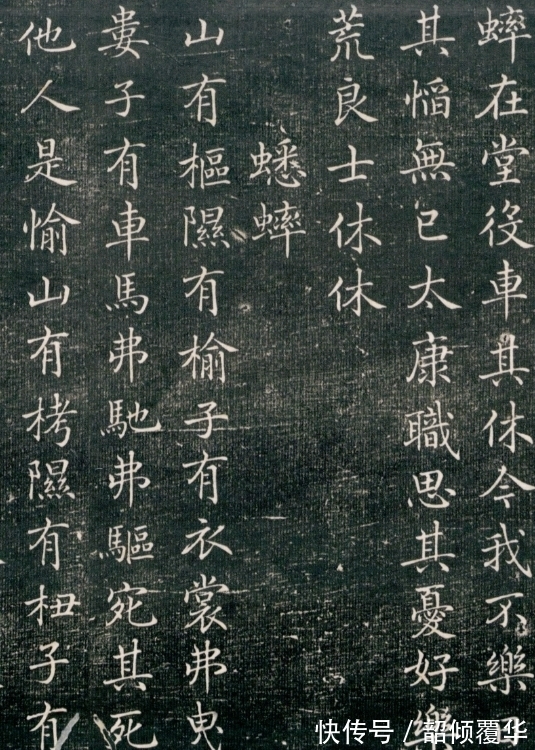 蟀在堂役車其休今我不樂
其慆無已太康職思其憂好樂
荒良士休休
蟋蟀
山有樞隰有榆子有衣裳弗曳
婁子有車馬弗馳弗驅宛其死
他人是愉山有栲隰有杻子有
快传号 / 韶倾覆华